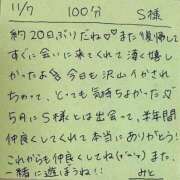 11/7 100分 S様
約20日ぶりだね♡♡また復帰して
すぐに会いに来てくれて凄く嬉し
かったよ☆今日も沢山イかされ
ちゃって、とっても気持ちよかった♡
5月にS様とは出会って、半年間
仲良くしてくれて本当にありがとう!
これからも仲良くしてね(*^^*)また
一緒に遊ぼうね!! みと